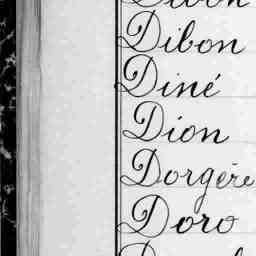 Dibon
Diné
Dion
Dorgère
Doro